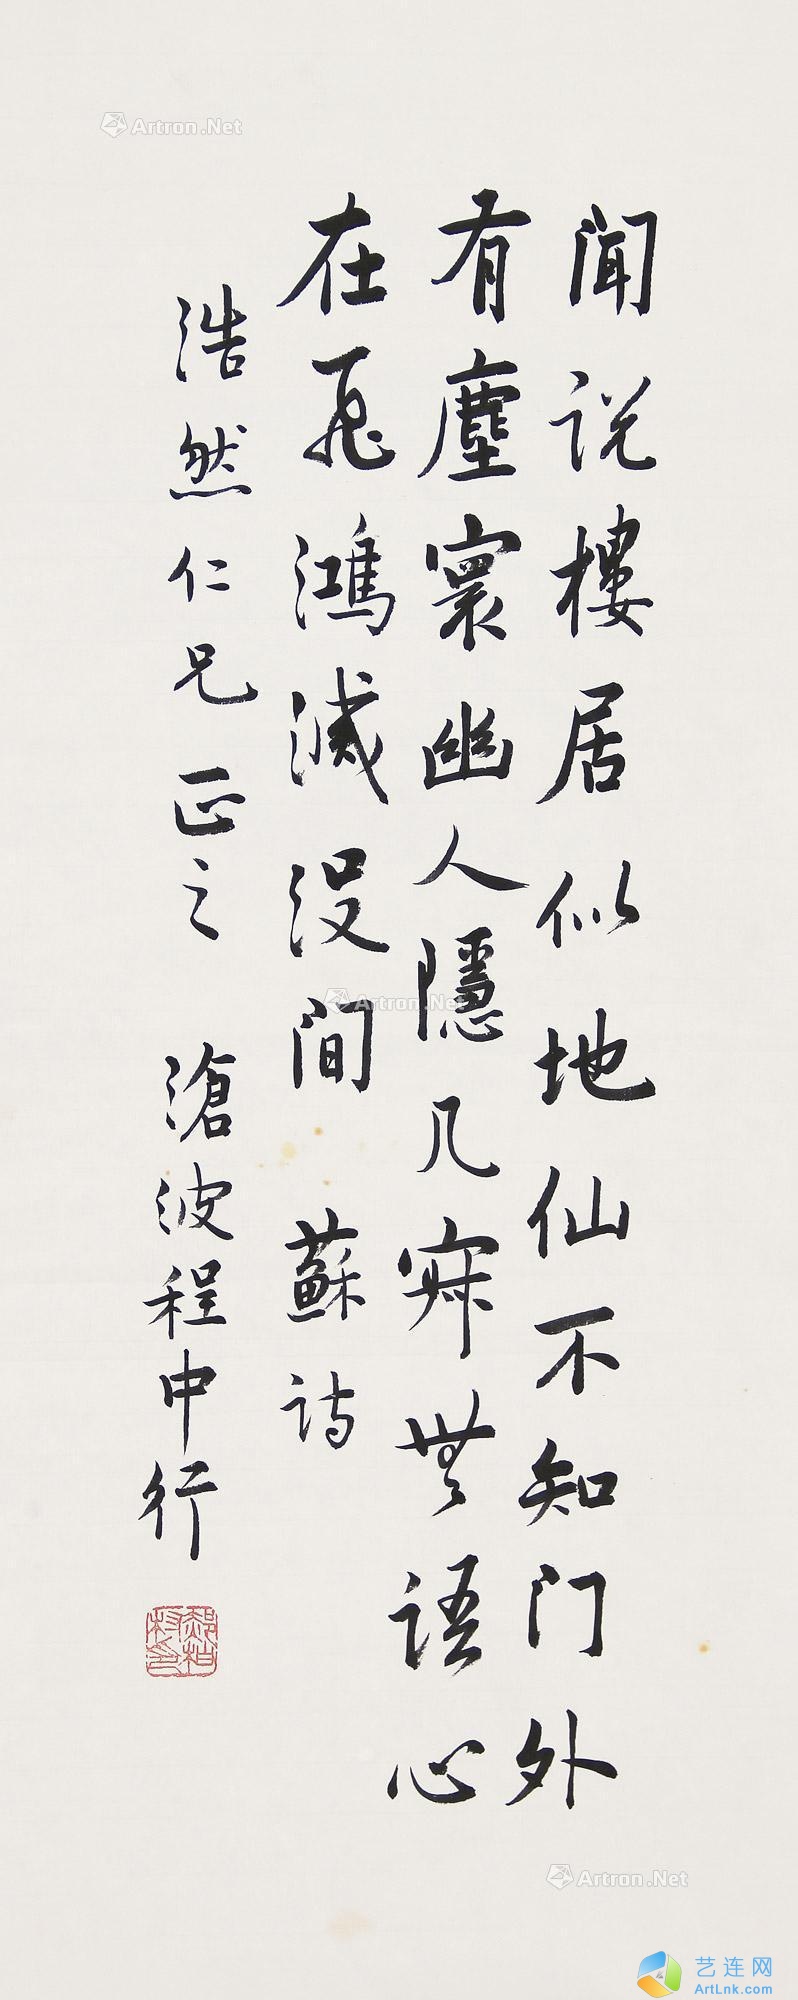 闻说樓居似地仙不知门外
有塵寰幽人隱几寂無语心
在飛鴻滅没间 蘇诗
浩然仁兄正之 滄波程中行
Artron.Net
Artron.Net
Artron.Net
艺连网
ArtLnk.com